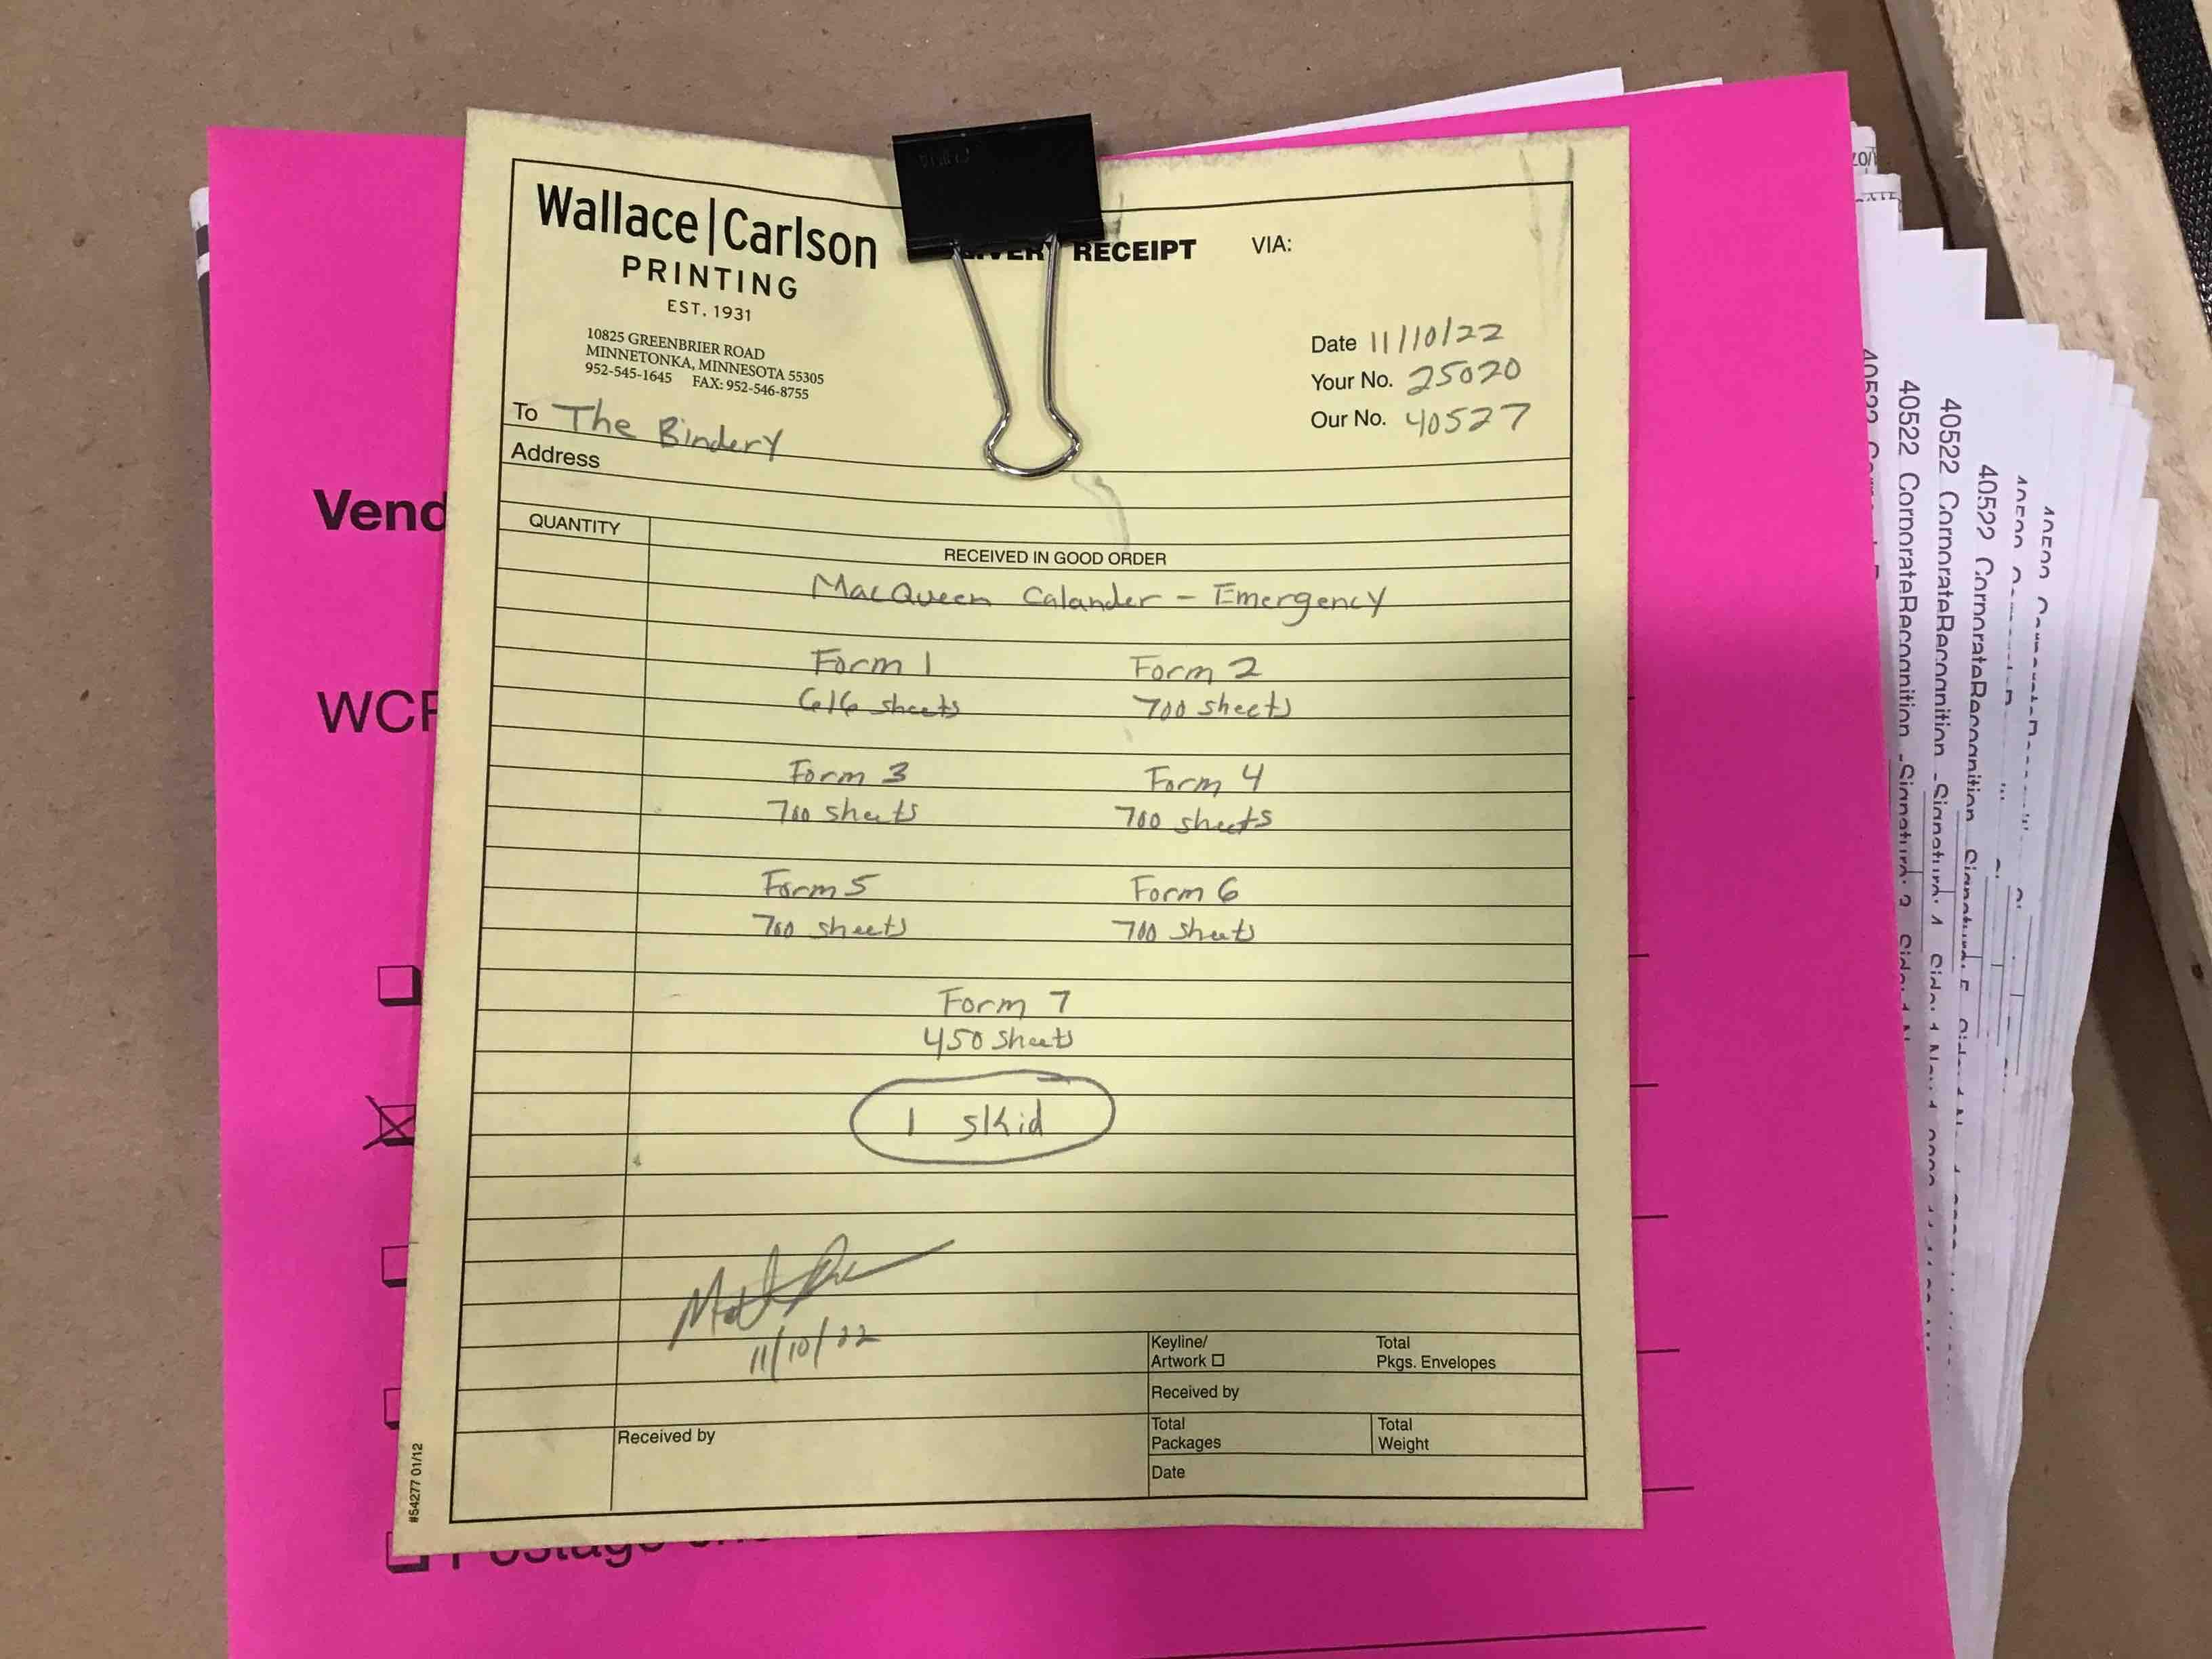 Wallace|Carlson
PRINTING
EST. 1931
10825 GREENBRIER ROAD
MINNETONKA, MINNESOTA 55305
952-545-1645 FAX: 952-546-8755
RECEIPT VIA:
Date 11/10/22
Your No. 25020
Our No. 40527
To The Bindery
Address
QUANTITY
RECEIVED IN GOOD ORDER
MacQueen Calander - Emergency
Form 1 Form 2
616 sheets 700 sheets
Form 3 Form 4
700 sheets 700 sheets
Form 5 Form 6
700 sheets 700 sheets
Form 7
450 sheets
1 skid
11/10/22
Keyline/
Artwork
Total
Pkgs. Envelopes
Received by
Received by
Total
Packages
Total
Weight
Date
#54277 01/12
Vend
WCP
Postage
40522 CorporateRecognition
40522 CorporateRecognition
40522 CorporateRecognition